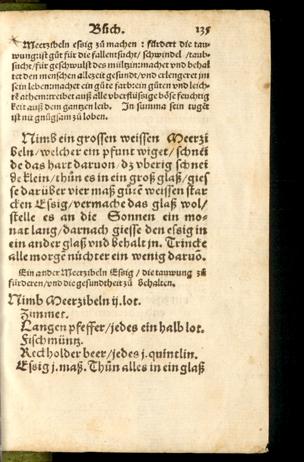 Büch. 135
Meerzibeln essig zü machen : fürdert die tau-
wung: ist güt für die fallentsucht/ schwindel /taub-
sucht/für geschwulst des miltzin: machet vnd behal
tet den menschen allezeit gesundt/vnd erlengeret im
sein leben: machet ein güte farb: ein güten vnd leich-
tē athem: treibet auß alle vberflüssige böse feuchtig
keit auß dem gantzen leib. In summa sein tuget
ist nit gnügsam zü loben.
Nimb ein grossen weissen Meerzi
beln/welcher ein pfunt wiget/schnei
de das hart daruon. dz vberig schnei
de klein/thün es in ein groß glaß/gies
se darüber vier maß gütē weissen star
cken Essig/vermache das glaß wol/
stelle es an die Sonnen ein mo-
nat lang/darnach giesse den essig in
ein ander glaß vnd behalt jn. Trincke
alle morgē nüchter ein wenig daruō.
Ein ander Meerzibeln Essig / die tauwung zü
fürderen/vnd die gesundtheit zü behalten.
Nimb Meerzibeln ij. lot.
Zimmet.
Langen pfeffer/jedes ein halb lot.
Fischmüntz.
Reckholder beer/jedes j. quintlin.
Essig j. maß. Thün alles in ein glaß